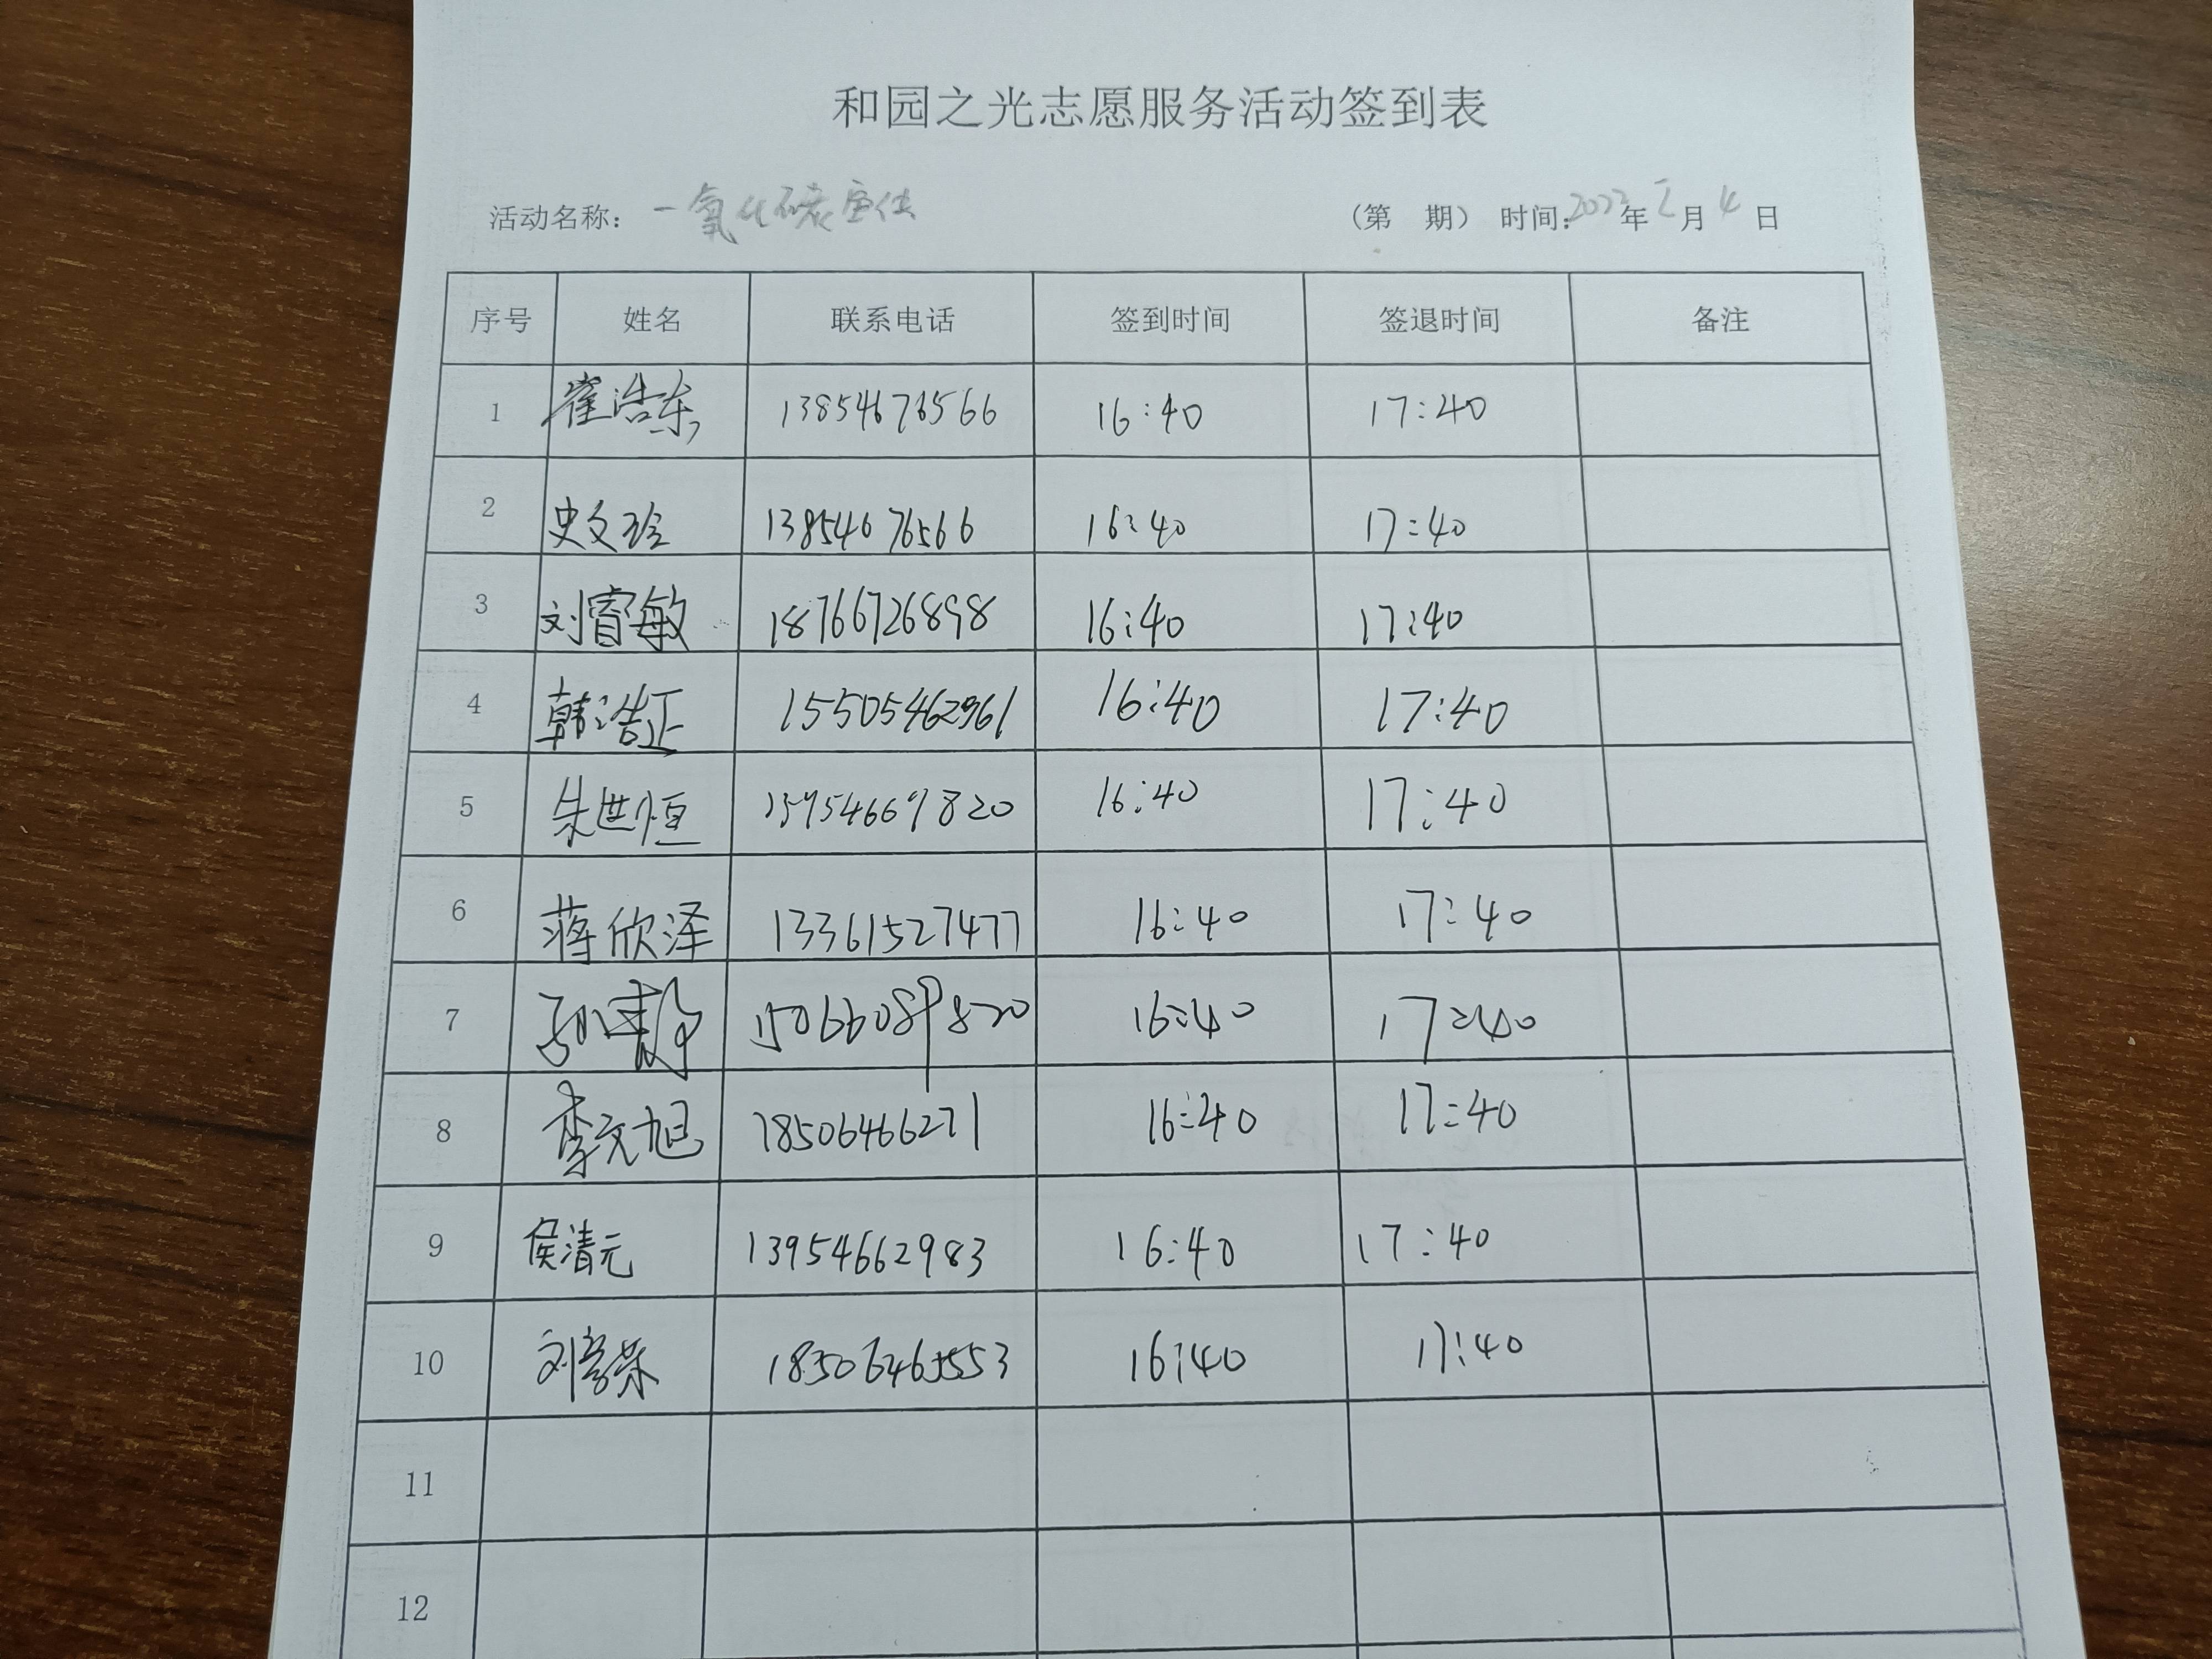 和园之光志愿服务活动签到表
活动名称： 一氧化碳宣传 （第 期） 时间: 年 月 4 日
序号 姓名 联系电话 签到时间 签退时间 备注
1 崔浩东 13854676566 16:40 17:40
2 史文玲 13854676566 16:40 17:40
3 刘睿敏 18766726898 16:40 17:40
4 韩浩正 15505462961 16:40 17:40
5 朱世恒 13954669820 16:40 17:40
6 蒋欣泽 13361527477 16:40 17:40
7 孙静 15066089820 16:40 17:40
8 李文旭 18506466271 16:40 17:40
9 侯清元 13954662983 16:40 17:40
10 刘 荣 16:40 17:40
11
12